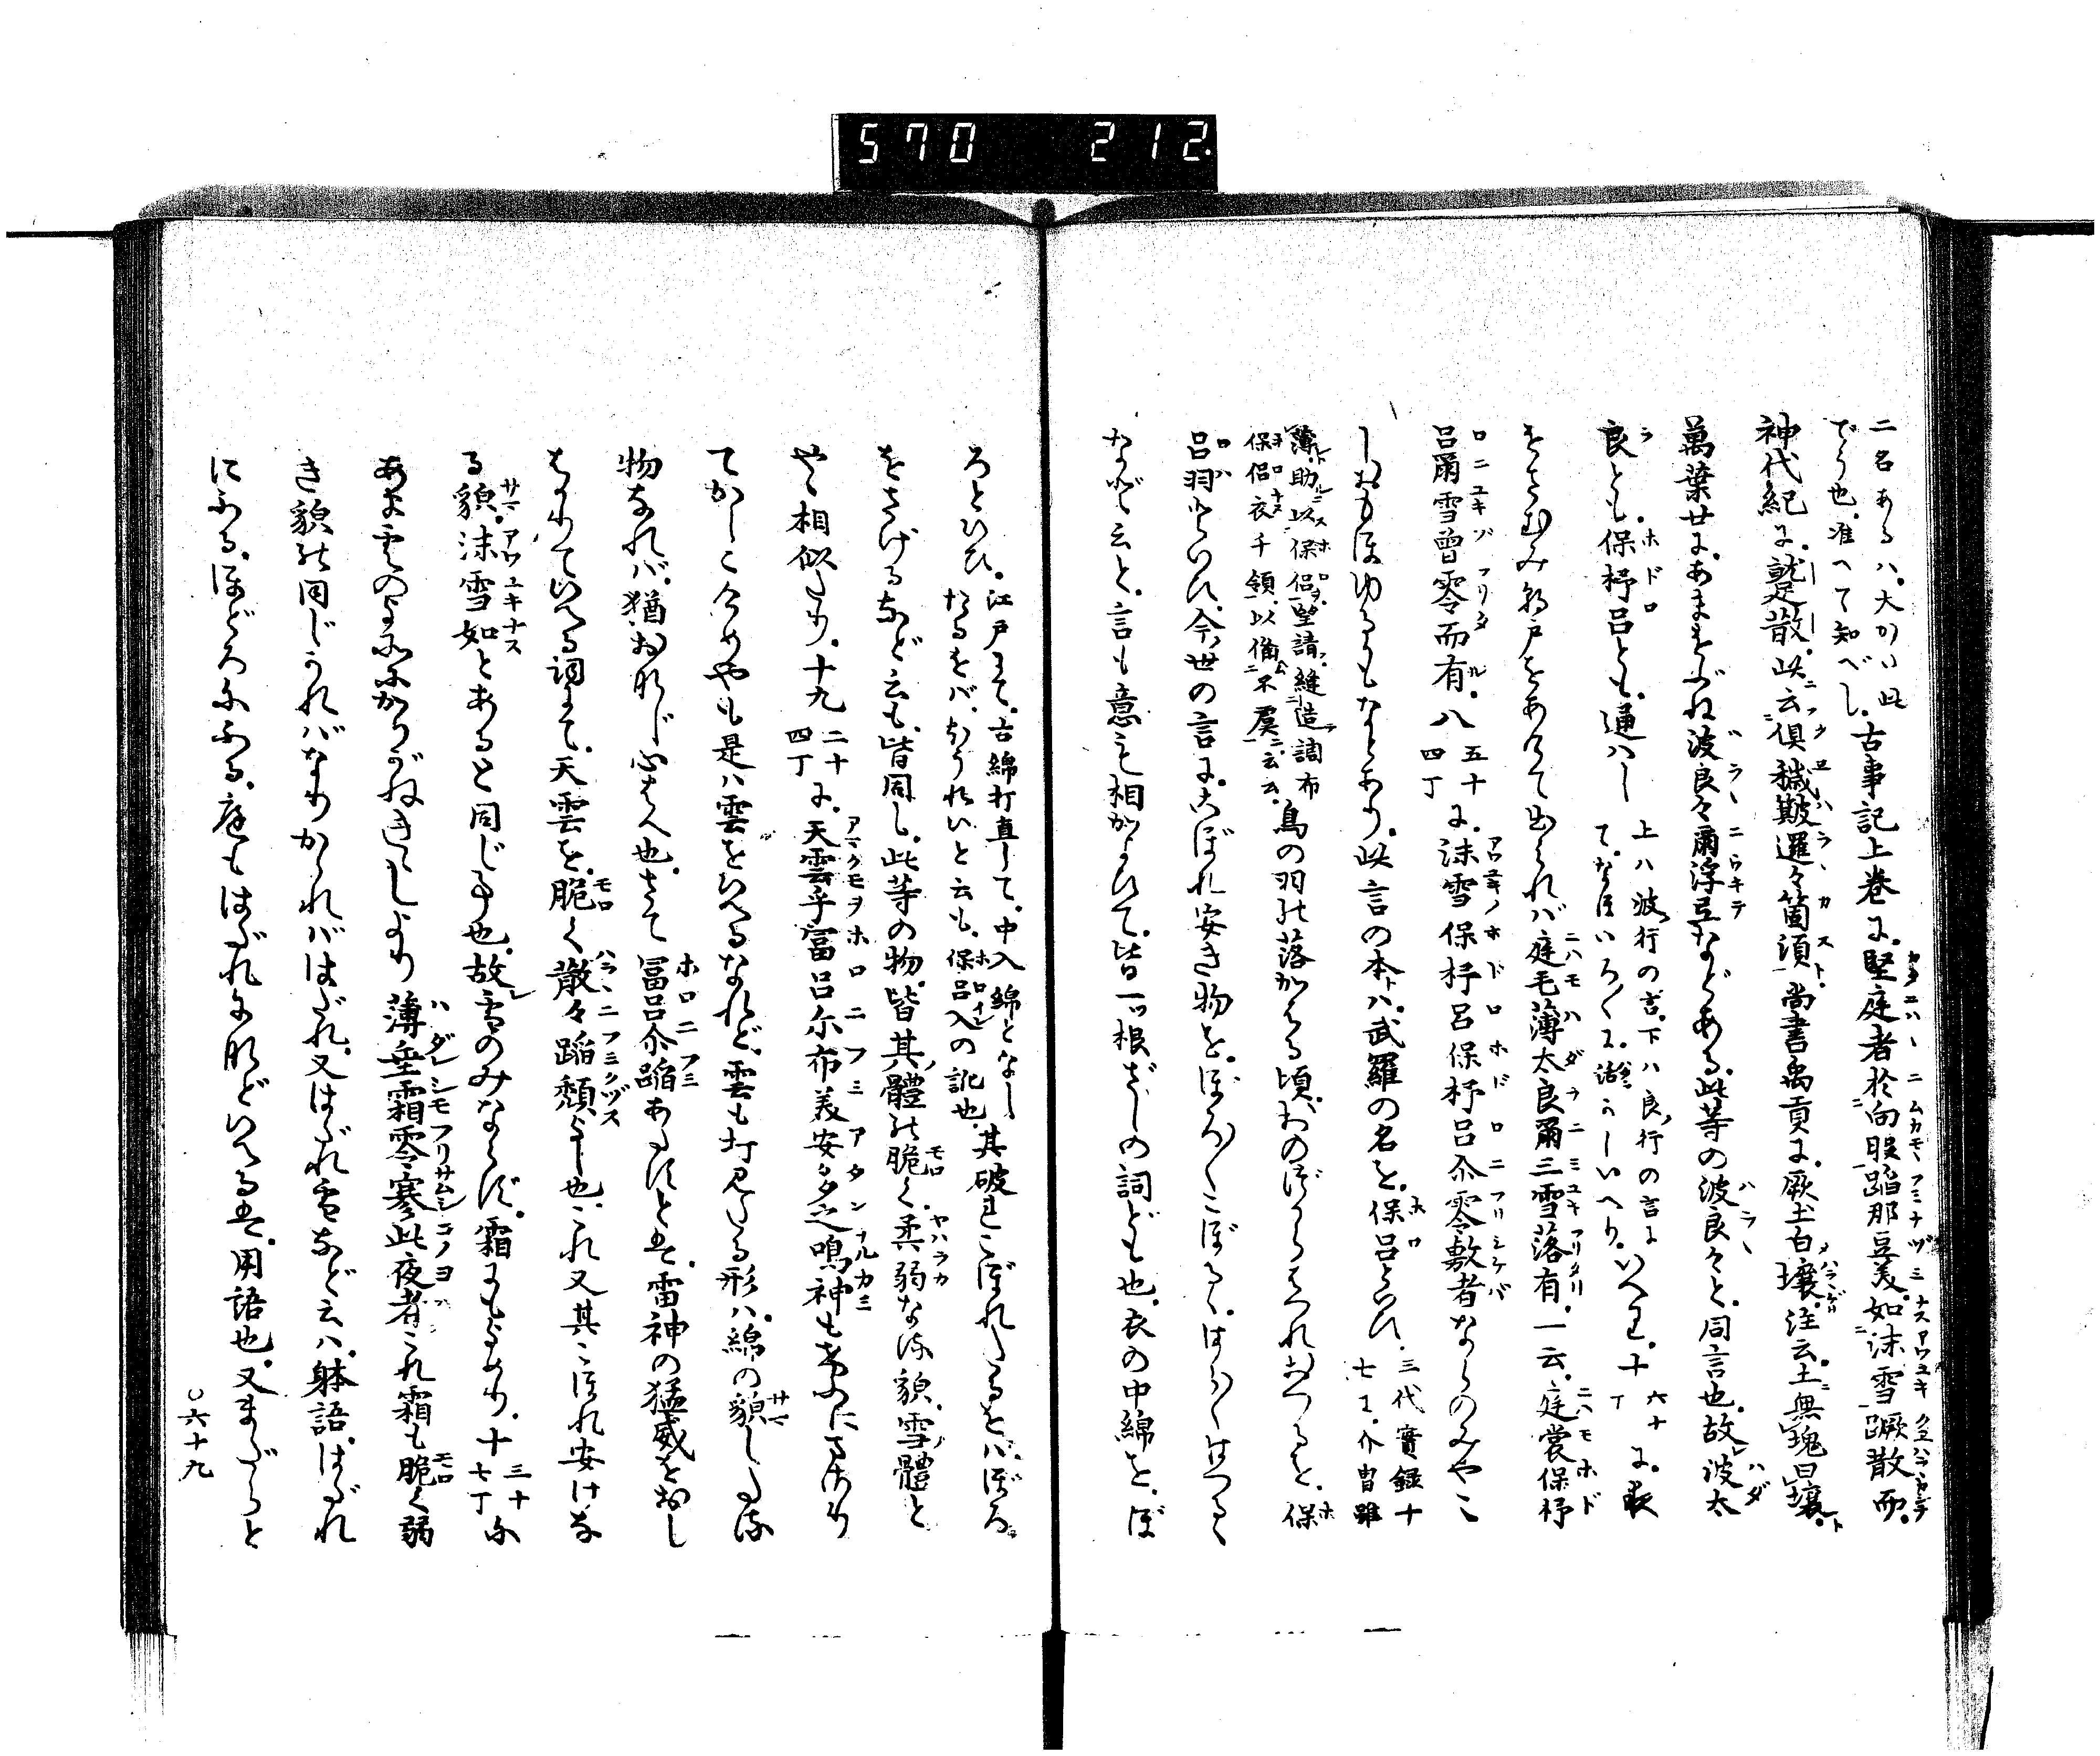 570 212.
二名あるハ、大かハ此
でう也、准へて知べし、古事記上巻に、堅庭者於向股蹈那豆美、如沫雪蹶散而、
神代紀に、蹴散、此云倶穢簸邏々箇須、尚書禹貢に、厥土白壤、注云、土無塊曰壤、
萬葉廿に、あまをぶね波良々爾浮弖などある、此等の波良々と、同言也、故波太
良とも、保杼呂とも、通ハし
上ハ波行の言、下ハ良行の言に
て、なほいろ〳〵に活かしいへり、
いへり、十六十丁に、
をさむみ朝戸をあけて出見れバ庭毛薄太良爾三雪落有、一云、庭裳保杼
呂爾雪曾零而有、八五十四丁に、沫雪保杼呂保杼呂尒零敷者ならのみやこ
しおもほゆるもなどあり、此言の本ハ、武羅の名を、保呂といひ、三代實録十
七に、介冑雖
薄、助以保侶、望請、縫造調布
保侶衣千領、以備不虞云云、
鳥の羽の落かゝる頃、おのづからはつれおつるを、保
呂羽といひ、今世の言に、こぼれ安き物を、ぼろ〳〵こぼるゝ、はら〳〵はつるゝ
など云と、言も意も相かよひて、皆一ッ根ざしの詞ども也、衣の中綿を、ぼ
ろといひ、
江戸にて、古綿打直して、中入綿となし
たるをバ、ほうれいと云も、保呂入の訛也、
其破れこぼれたるをバ、ぼろ
をさげるなど云も、皆同し、此等の物、皆其體の脆く、柔弱なる貌、雪體と
やゝ相似たり、十九二十四丁に、天雲乎富呂尓布美安多之鳴神も今日に益れり
てかしこけめやも是ハ雲をいへるなれど、雲も打見たる形ハ、綿の貌したる
物なれバ、猶おなじ心はへ也、さて富呂尒蹈あたしとは、雷神の猛威をおし
はかりていへる詞にて、天雲を、脆く散々蹈頽す也、これ又其こほれ安けな
る貌、沫雪如とあると同じ事也、故雪のみならず、霜にもよめり、十三十七丁に
あまとぶやかりがねきこしより薄垂霜零寒此夜者これ霜も脆く弱
き貌の同じければなりかゝれバはだれ、又はだれ雪など云ハ、躰語、はだれ
にふる、ほどろにふる、庭もはだれになどいへるは、用語也、又まだらと
○六十九